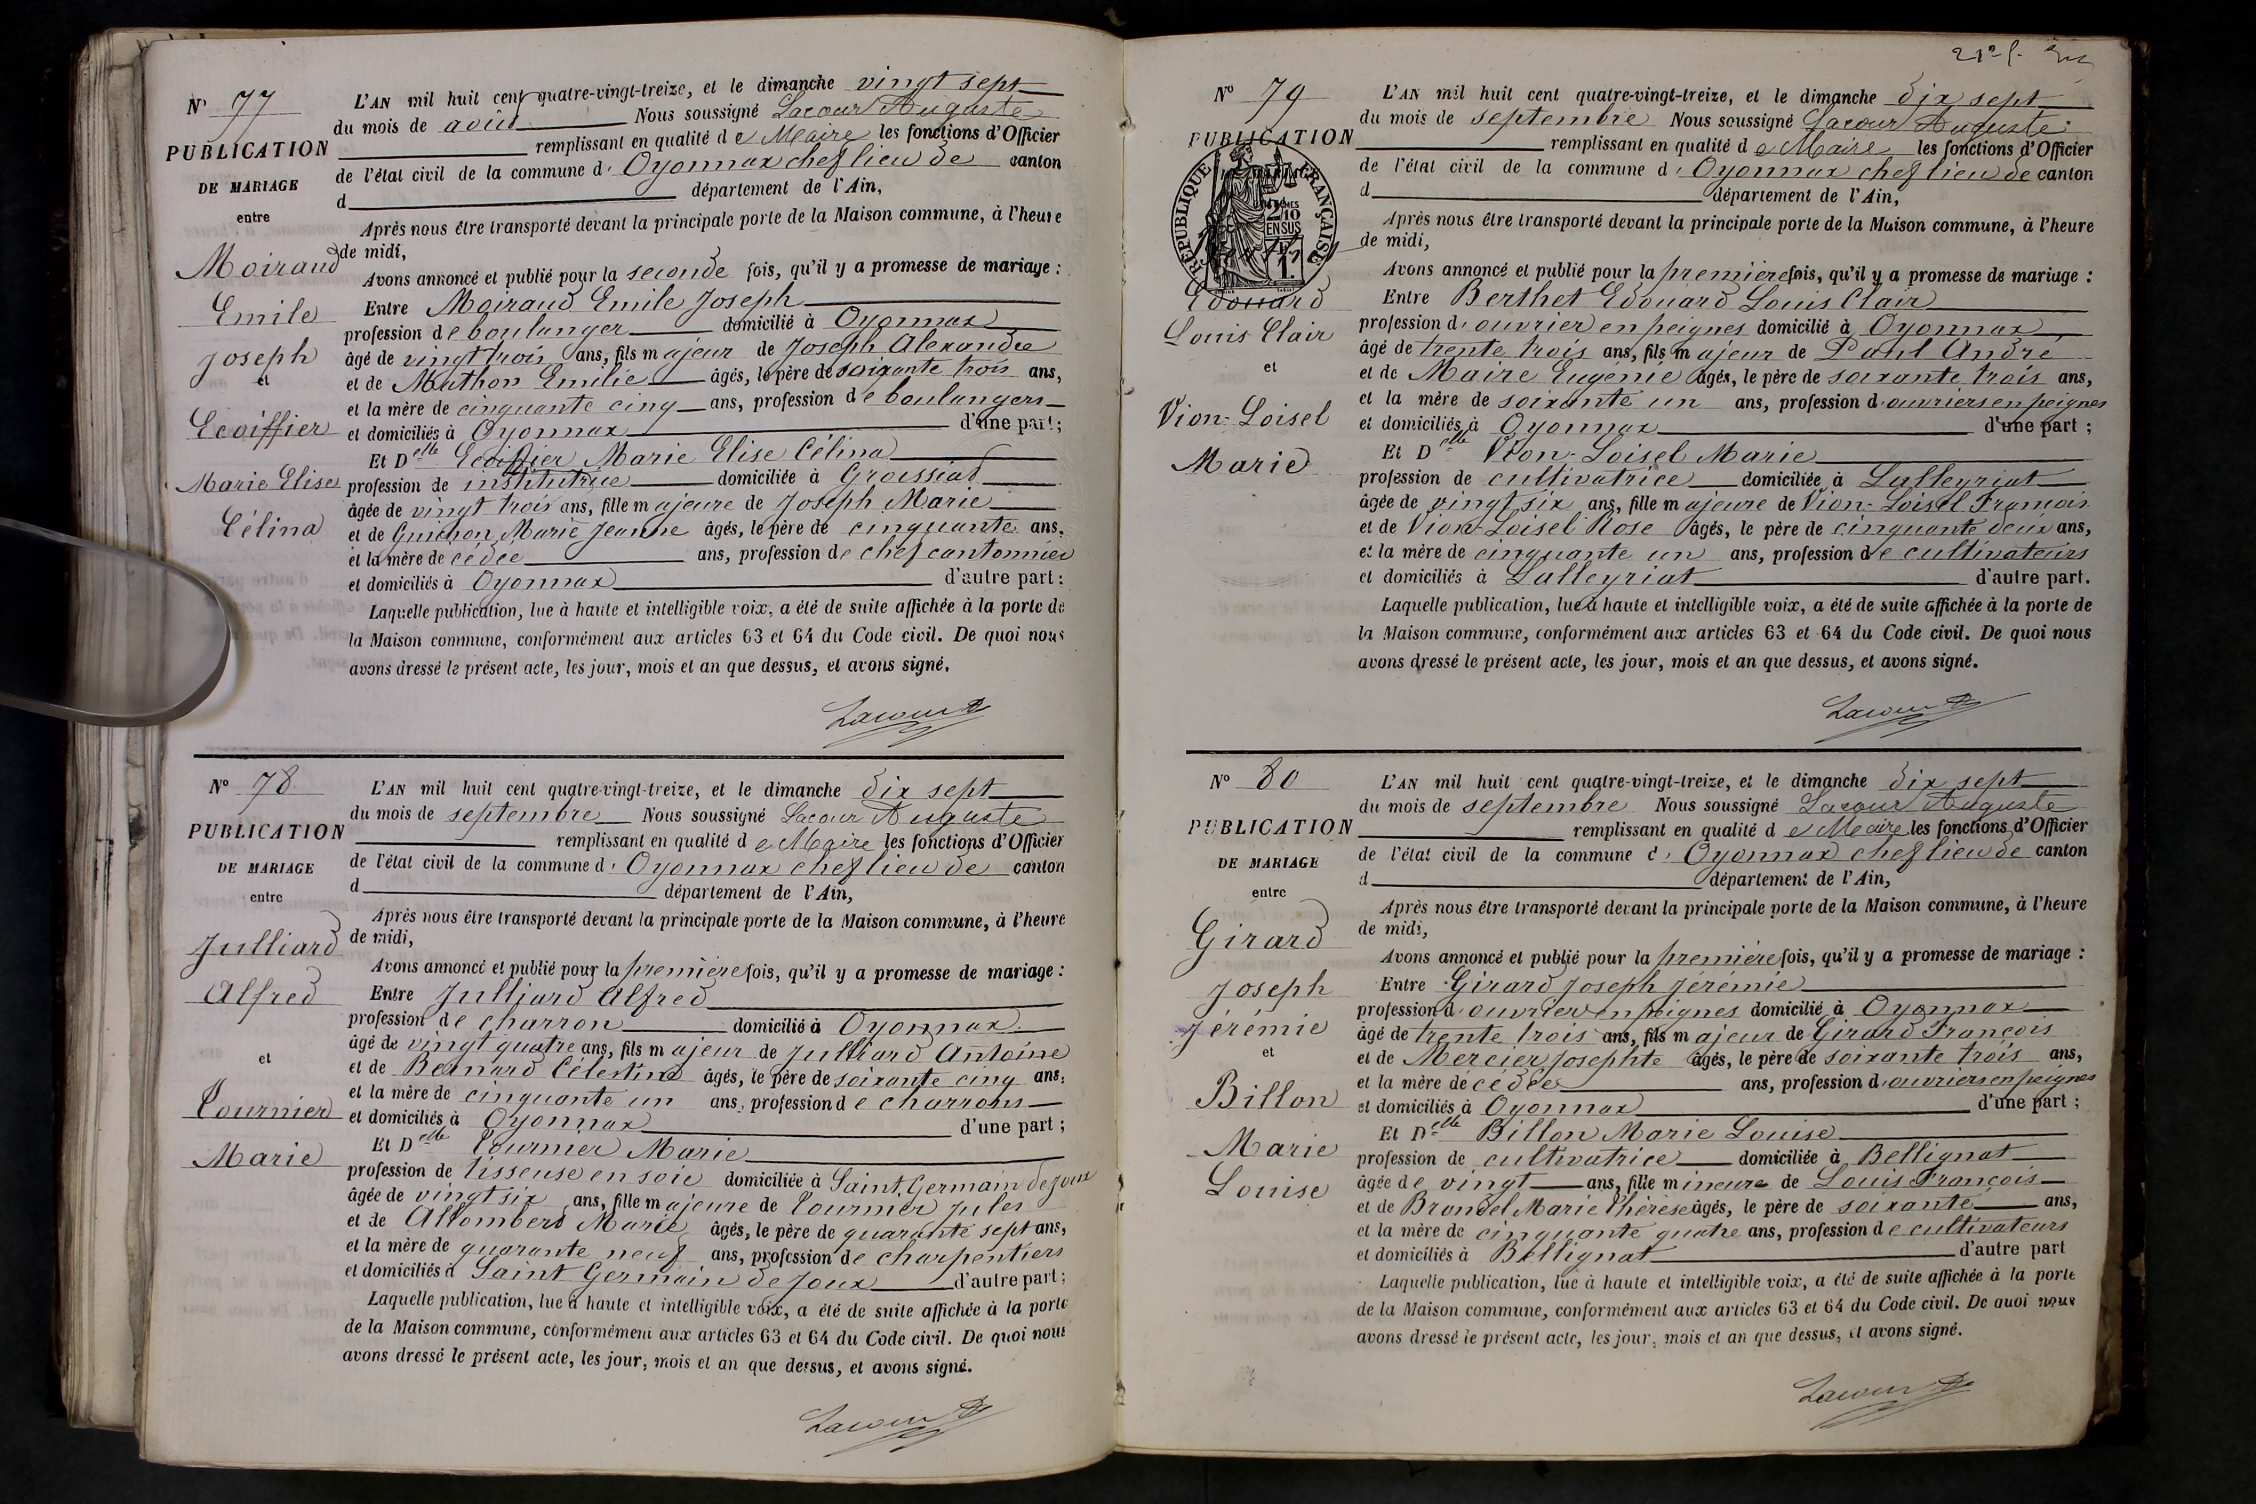 N° 77
PUBLICATION
DE MARIAGE
entre
Moiraud
Emile
Joseph
et
Ecoiffier
Marie Elise
Célina
L'AN mil huit cent quatre-vingt-treize, et le dimanche vingt sept
du mois de août Nous soussigné Lacour Auguste
remplissant en qualité de Maire les fonctions d'Officier
de l'état civil de la commune d'Oyonnax chef lieu de canton
d département de l'Ain,
Après nous être transporté devant la principale porte de la Maison commune, à l'heure
de midi,
Avons annoncé et publié pour la seconde fois, qu'il y a promesse de mariage :
Entre Moiraud Emile Joseph
profession de boulanger domicilié à Oyonnax
âgé de vingt trois ans, fils majeur de Joseph Alexandre
et de Mathon Emilie âgés, le père de soixante trois ans,
et la mère de cinquante cinq ans, profession de boulangers
et domiciliés à Oyonnax d'une part;
Et Delle Ecoiffier Marie Elise Célina
profession de institutrice domiciliée à Groissiat
âgée de vingt trois ans, fille majeure de Joseph Marie
et de Guichon Marie Jeanne âgés, le père de cinquante ans,
et la mère décédée ans, profession de chef cantonnier
et domiciliés à Oyonnax d'autre part :
Laquelle publication, lue à haute et intelligible voix, a été de suite affichée à la porte de
la Maison commune, conformément aux articles 63 et 64 du Code civil. De quoi nous
avons dressé le présent acte, les jour, mois et an que dessus, et avons signé.
Lacour
N° 78
PUBLICATION
DE MARIAGE
entre
Julliard
Alfred
et
Tournier
Marie
L'AN mil huit cent quatre-vingt-treize, et le dimanche dix sept
du mois de septembre Nous soussigné Lacour Auguste
remplissant en qualité de Maire les fonctions d'Officier
de l'état civil de la commune d'Oyonnax chef lieu de canton
d département de l'Ain,
Après nous être transporté devant la principale porte de la Maison commune, à l'heure
de midi,
Avons annoncé et publié pour la première fois, qu'il y a promesse de mariage :
Entre Julliard Alfred
profession de charron domicilié à Oyonnax
âgé de vingt quatre ans, fils majeur de Julliard Antoine
et de Bernard Célestine âgés, le père de soixante cinq ans,
et la mère de cinquante un ans, profession de charrons
et domiciliés à Oyonnax d'une part ;
Et Delle Tournier Marie
profession de tisseuse en soie domiciliée à Saint Germain de Joux
âgée de vingt six ans, fille majeure de Tournier Jules
et de Allombert Marie âgés, le père de quarante sept ans,
et la mère de quarante neuf ans, profession de charpentiers
et domiciliés à Saint Germain de Joux d'autre part ;
Laquelle publication, lue à haute et intelligible voix, a été de suite affichée à la porte
de la Maison commune, conformément aux articles 63 et 64 du Code civil. De quoi nous
avons dressé le présent acte, les jour, mois et an que dessus, et avons signé.
Lacour
N° 79
PUBLICATION
RÉPUBLIQUE FRANÇAISE
2/10
EN SUS
1 F
Edouard
Louis Clair
et
Vion-Loisel
Marie
L'AN mil huit cent quatre-vingt-treize, et le dimanche dix sept
du mois de septembre Nous soussigné Lacour Auguste
remplissant en qualité de Maire les fonctions d'Officier
de l'état civil de la commune d'Oyonnax chef lieu de canton
d département de l'Ain,
Après nous être transporté devant la principale porte de la Maison commune, à l'heure
de midi,
Avons annoncé et publié pour la première fois, qu'il y a promesse de mariage :
Entre Berthet Edouard Louis Clair
profession d'ouvrier en peignes domicilié à Oyonnax
âgé de trente trois ans, fils majeur de Paul André
et de Maire Eugénie âgés, le père de soixante trois ans,
et la mère de soixante un ans, profession d'ouvriers en peignes
et domiciliés à Oyonnax d'une part ;
Et Delle Vion-Loisel Marie
profession de cultivatrice domiciliée à Lalleyriat
âgée de vingt six ans, fille majeure de Vion-Loisel François
et de Vion-Loisel Rose âgés, le père de cinquante deux ans,
et la mère de cinquante un ans, profession de cultivateurs
et domiciliés à Lalleyriat d'autre part.
Laquelle publication, lue à haute et intelligible voix, a été de suite affichée à la porte de
la Maison commune, conformément aux articles 63 et 64 du Code civil. De quoi nous
avons dressé le présent acte, les jour, mois et an que dessus, et avons signé.
Lacour
N° 80
PUBLICATION
DE MARIAGE
entre
Girard
Joseph
Jérémie
et
Billon
Marie
Louise
L'AN mil huit cent quatre-vingt-treize, et le dimanche dix sept
du mois de septembre Nous soussigné Lacour Auguste
remplissant en qualité de Maire les fonctions d'Officier
de l'état civil de la commune d'Oyonnax chef lieu de canton
d département de l'Ain,
Après nous être transporté devant la principale porte de la Maison commune, à l'heure
de midi,
Avons annoncé et publié pour la première fois, qu'il y a promesse de mariage :
Entre Girard Joseph Jérémie
profession d'ouvrier en peignes domicilié à Oyonnax
âgé de trente trois ans, fils majeur de Girard François
et de Mercier Josephte âgés, le père de soixante trois ans,
et la mère décédée ans, profession d'ouvriers en peignes
et domiciliés à Oyonnax d'une part ;
Et Delle Billon Marie Louise
profession de cultivatrice domiciliée à Bellignat
âgée de vingt ans, fille mineure de Louis François
et de Brondel Marie Thérèse âgés, le père de soixante ans,
et la mère de cinquante quatre ans, profession de cultivateurs
et domiciliés à Bellignat d'autre part
Laquelle publication, lue à haute et intelligible voix, a été de suite affichée à la porte
de la Maison commune, conformément aux articles 63 et 64 du Code civil. De quoi nous
avons dressé le présent acte, les jour, mois et an que dessus, et avons signé.
Lacour